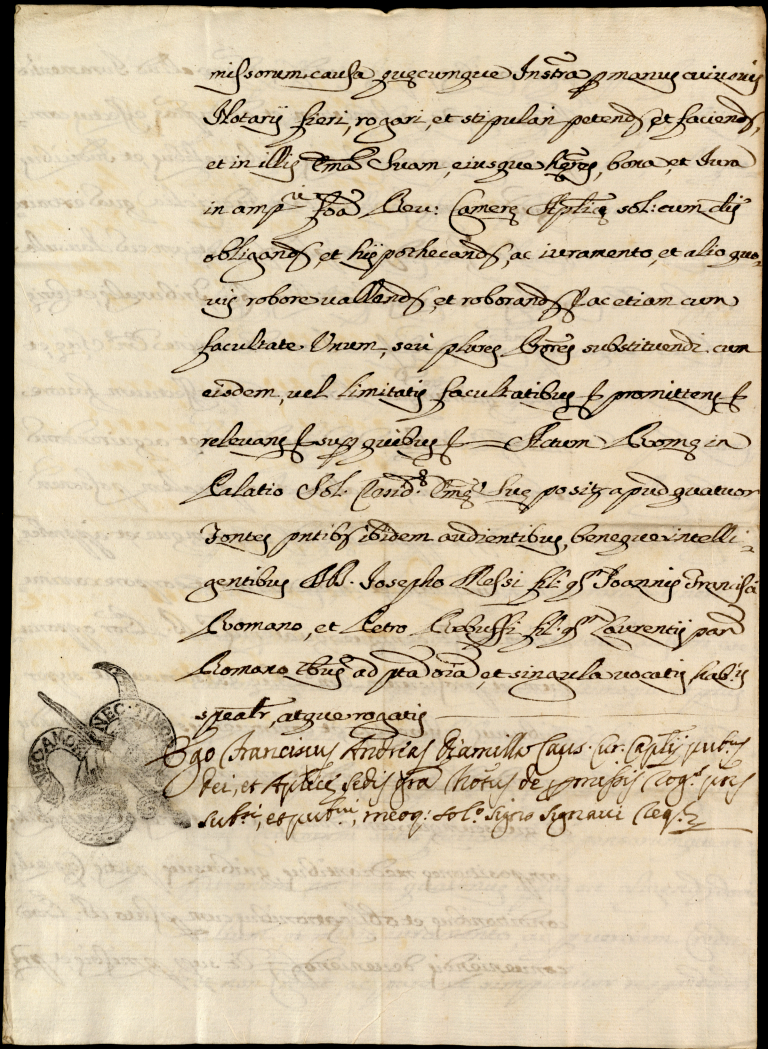 missorum causa quęcumque Instra p manus cuiusvis
Notarij fieri, rogari, et stipulari petend, et faciend,
et in illis Emã Suam, eiusque hęrẽs, bona, et Iura
in ampri Foã Rev: Camerę Aplicę sol: cum clis
obligand, et hÿpothecand, ac iuramento, et alio quo-
vis robore valland, et roborand ac etiam cum
facultate Unum, seu plures Prores substituendi cum
eisdem, vel limitatis facultatibus promittens
relevans sup quibus Actum Romę in
Palatio Sol. Resid. Emę Suę posit apud quatuor
Fontes pntibs ibidem audientibus, beneque intelli-
gentibus DD. Josepho Nessi fil: qm Joannis Francisci
Romano, et Petro Rebuffi fil: qm Laurentij pari
Romano tbus ad pta oia, et singula vocatis hab:s
spealr, atque rogatis
Ego Franciscus Andreas Caus. Cur. Caplij pubus
Dei, et Aplicę sedis gra Notus de pmissis rogs pns
subsi, et pubui, meoq: sol.o signo signavi Req.s
NEC AMORE NEC TIMORE